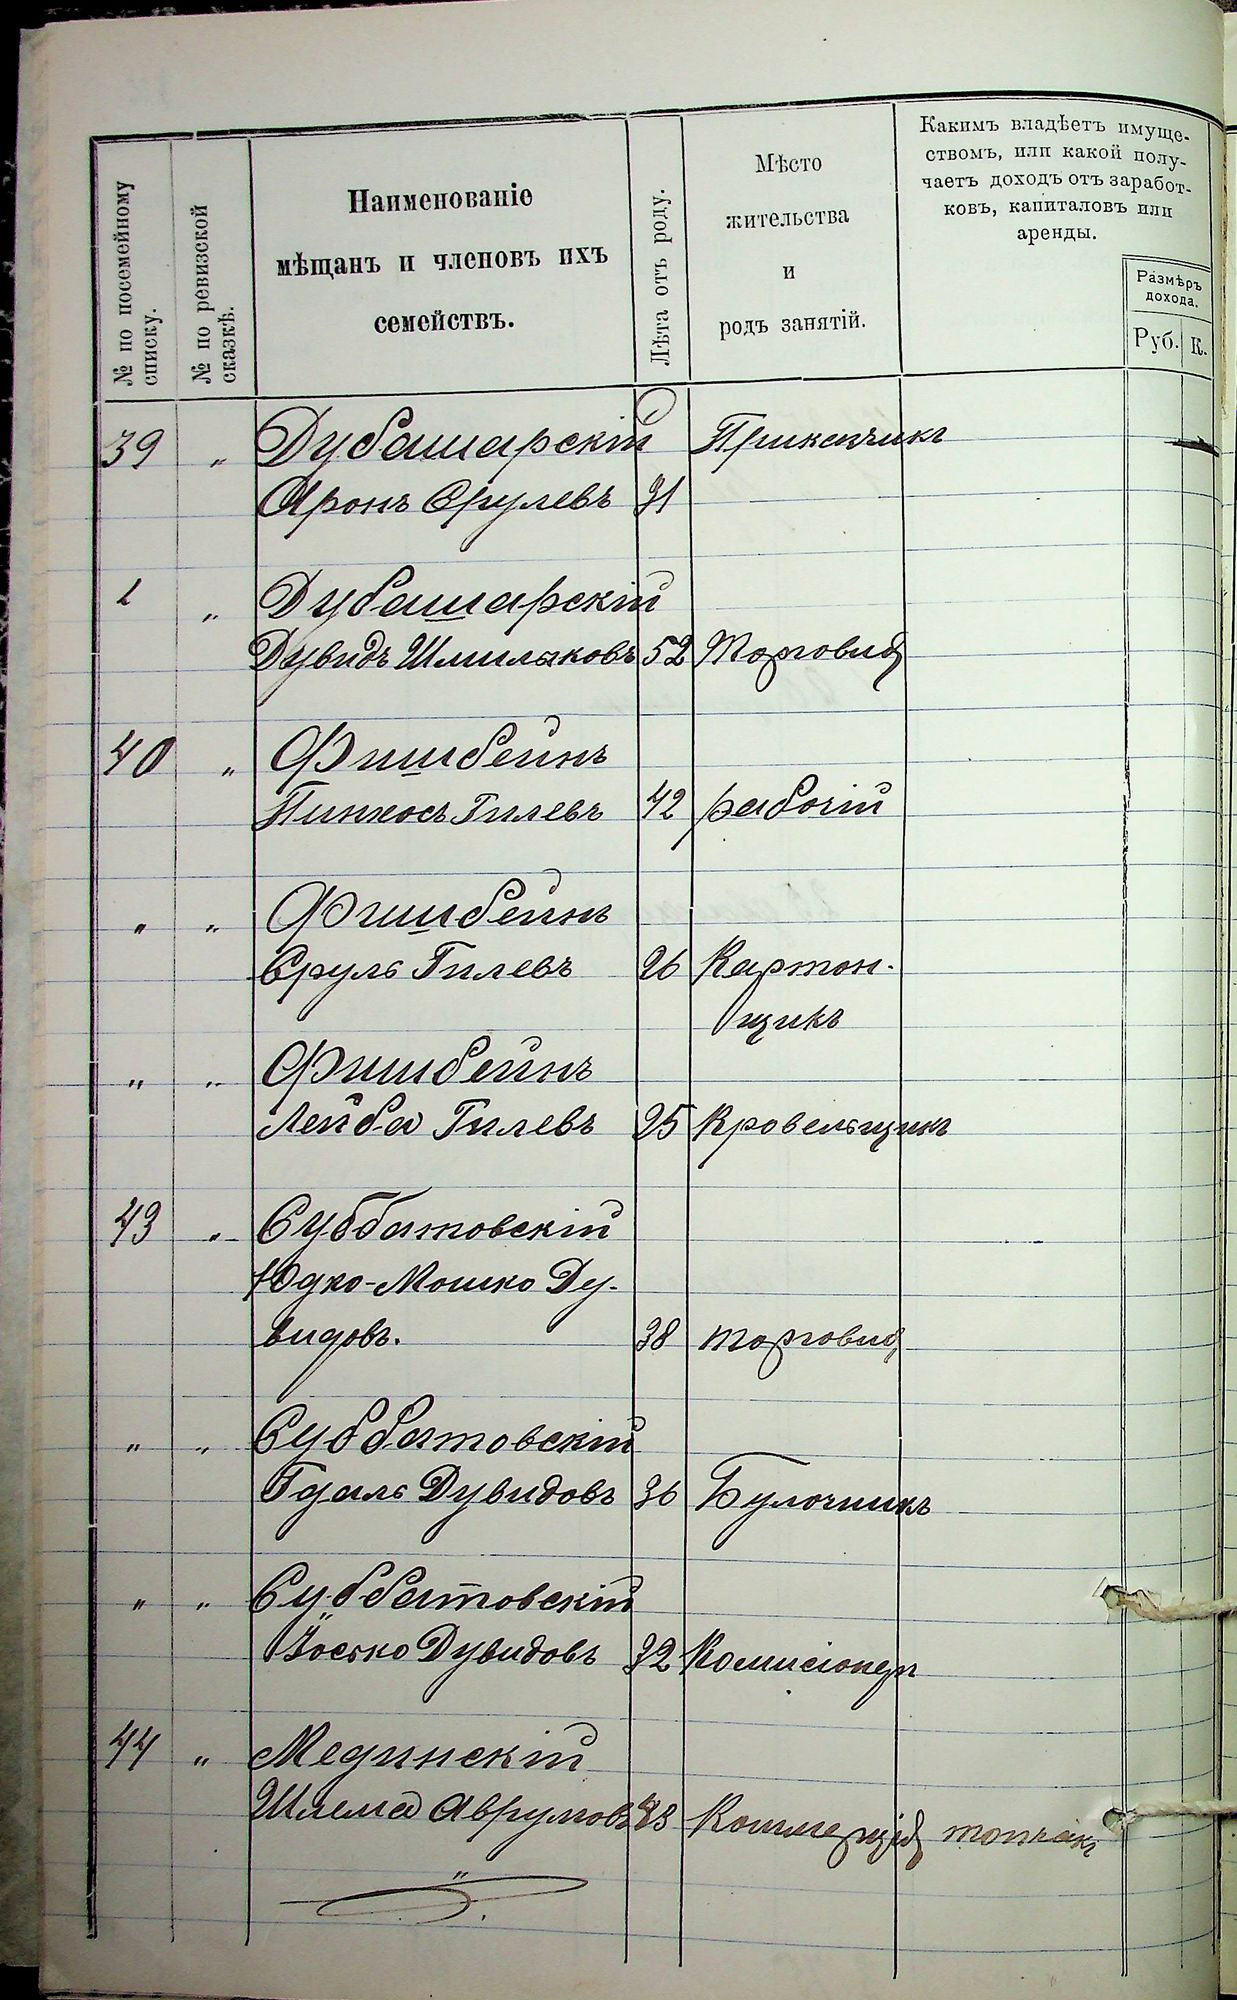 № по посемейному
списку.
№ по ревизской
сказкѣ.
Наименованіе
мѣщанъ и членовъ ихъ
семействъ.
Лѣта отъ роду.
Мѣсто
жительства
и
родъ занятій.
Какимъ владѣетъ имуще-
ствомъ, или какой полу-
чаетъ доходъ отъ заработ-
ковъ, капиталовъ или
аренды.
Размѣръ
дохода.
Руб. К.
39 „ Дубашарскій Прикащикъ
Аронъ Срулевъ 31
„ Дубашарскій
Дувидъ Шмиликовъ 52 Торговля
40 „ Фишбейнъ
Пинхосъ Гилевъ 42 рабочій
„ „ Фишбейнъ
Сруль Гилевъ 26 Картон-
щикъ
„ „ Фишбейнъ
Лейба Гилевъ 25 Кровельщикъ
43 „ Субботовскій
Юдко-Мошко Ду-
видовъ. 38 торговля
„ „ Субботовскій
Гдаль Дувидовъ 36 Булочникъ
„ „ Субботовскій
Іосько Дувидовъ 32 Комисіонер
44 „ Мединскій
Шлема Аврумовъ 43